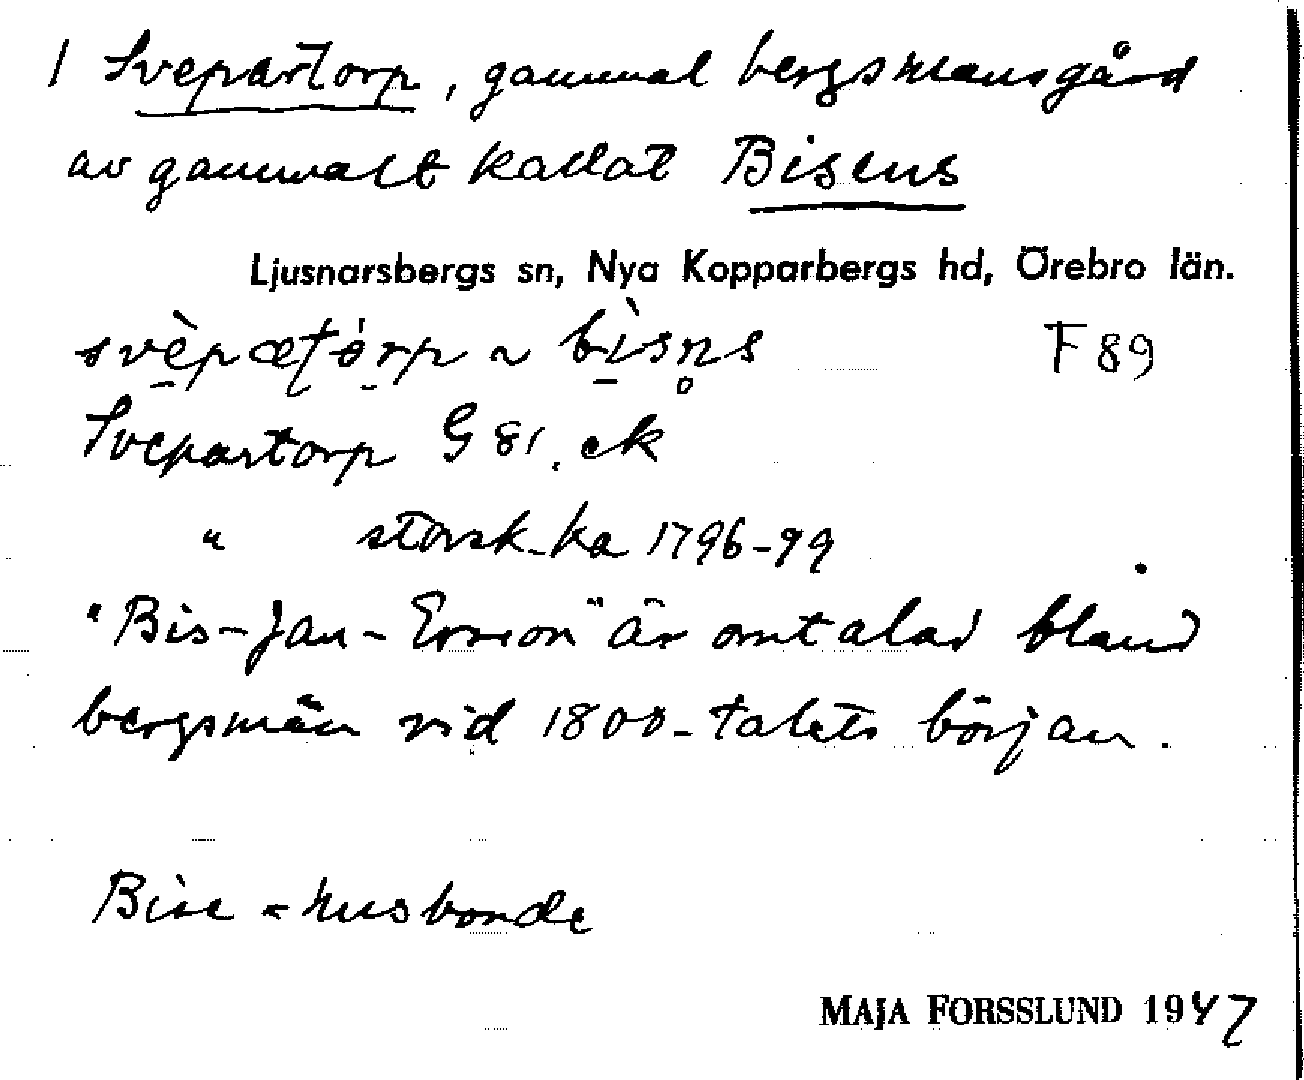 1 Svepartorp, gammal bergsmansgård
av gammalt kallat Bisens
Ljusnarsbergs sn, Nya Kopparbergs hd, Örebro län.
svèpætórp ~ bìsn̥s F 89
Svepartorp G 81, ek
" storsk.ka 1796-99
"Bis-Jan-Ersson" är omtalad bland
bergsmän vid 1800-talets början.
Bise = husbonde
MAJA FORSSLUND 1947